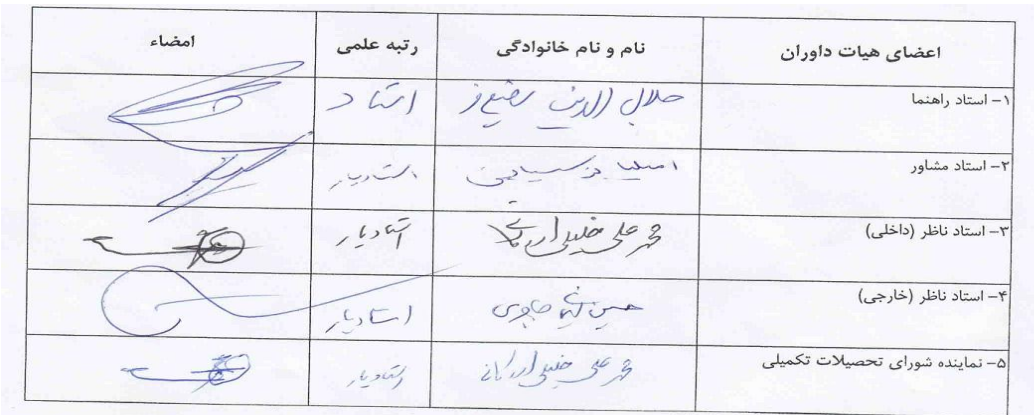 اعضای هیات داوران	نام و نام خانوادگی	رتبه علمی	امضاء
۱- استاد راهنما	جلال الدین	استاد
۲- استاد مشاور	استادیار
۳- استاد ناظر (داخلی)	محمد علی خلیلی اردکانی	استادیار
۴- استاد ناظر (خارجی)	حسین	استادیار
۵- نماینده شورای تحصیلات تکمیلی	محمد علی خلیلی اردکانی	استادیار